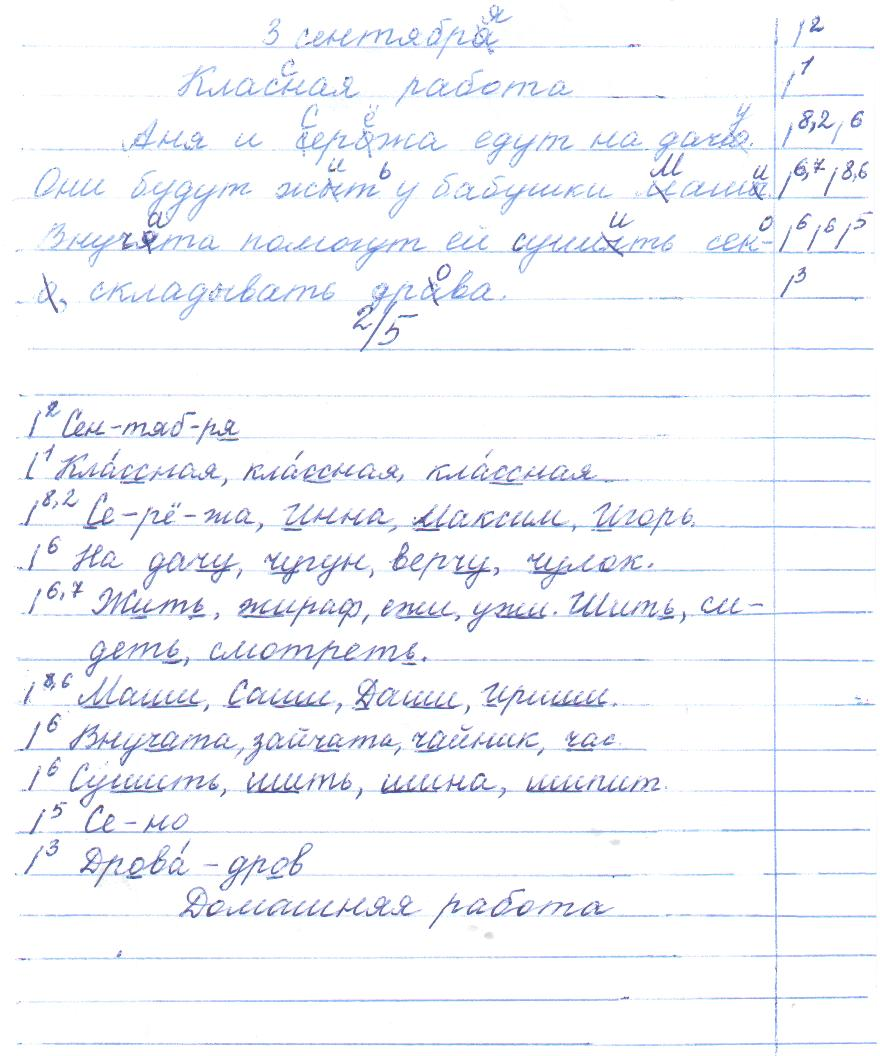 я
3 сентябра |²
с
Класная работа |¹
С ё у
Аня и серожа едут на дачю. |⁸,² |⁶
и ь М и
Они будут жыт у бабушки машы. |⁶,⁷ |⁸,⁶
а и о
Внучята помогут ей сушыть сен- |⁶ |⁶ |⁵
о
о, складывать драва. |³
2/5
|² Сен-тяб-ря
|¹ Кла́ссная, кла́ссная, кла́ссная
|⁸,² Се-рё-жа, Инна, Максим, Игорь.
|⁶ На дачу, чугун, верчу, чулок.
|⁶,⁷ Жить, жираф, ежи, ужи. Шить, си-
деть, смотреть.
|⁸,⁶ Маши, Саши, Даши, Ириши.
|⁶ Внучата, зайчата, чайник, час
|⁶ Сушить, шить, шина, шипит.
|⁵ Се-но
|³ Дрова́ - дров
Домашняя работа